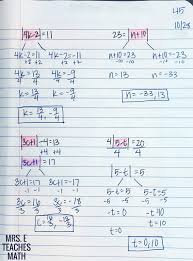 H5
10/28
|4k-2|=11
4k-2=11 4k-2=-11
+2 +2 +2 +2
4k=13 4k=-9
4 4 4 4
k=13/4 k=-9/4
k=13/4, -9/4
23=|n+10|
n+10=23 n+10=-23
-10 -10 -10 -10
n=13 n=-33
n=-33,13
|3c+1|-4=13
+4 +4
|3c+1|=17
3c+1=17 3c+1=-17
-1 -1 -1 -1
3c=16 3c=-18
3 3 3 3
4|5-t|=20
4 4
|5-t|=5
5-t=5 5-t=-5
-5 -5 -5 -5
-t=0 -t=-10
t=0 t=10
t=0,10
MRS. E
TEACHES
MATH